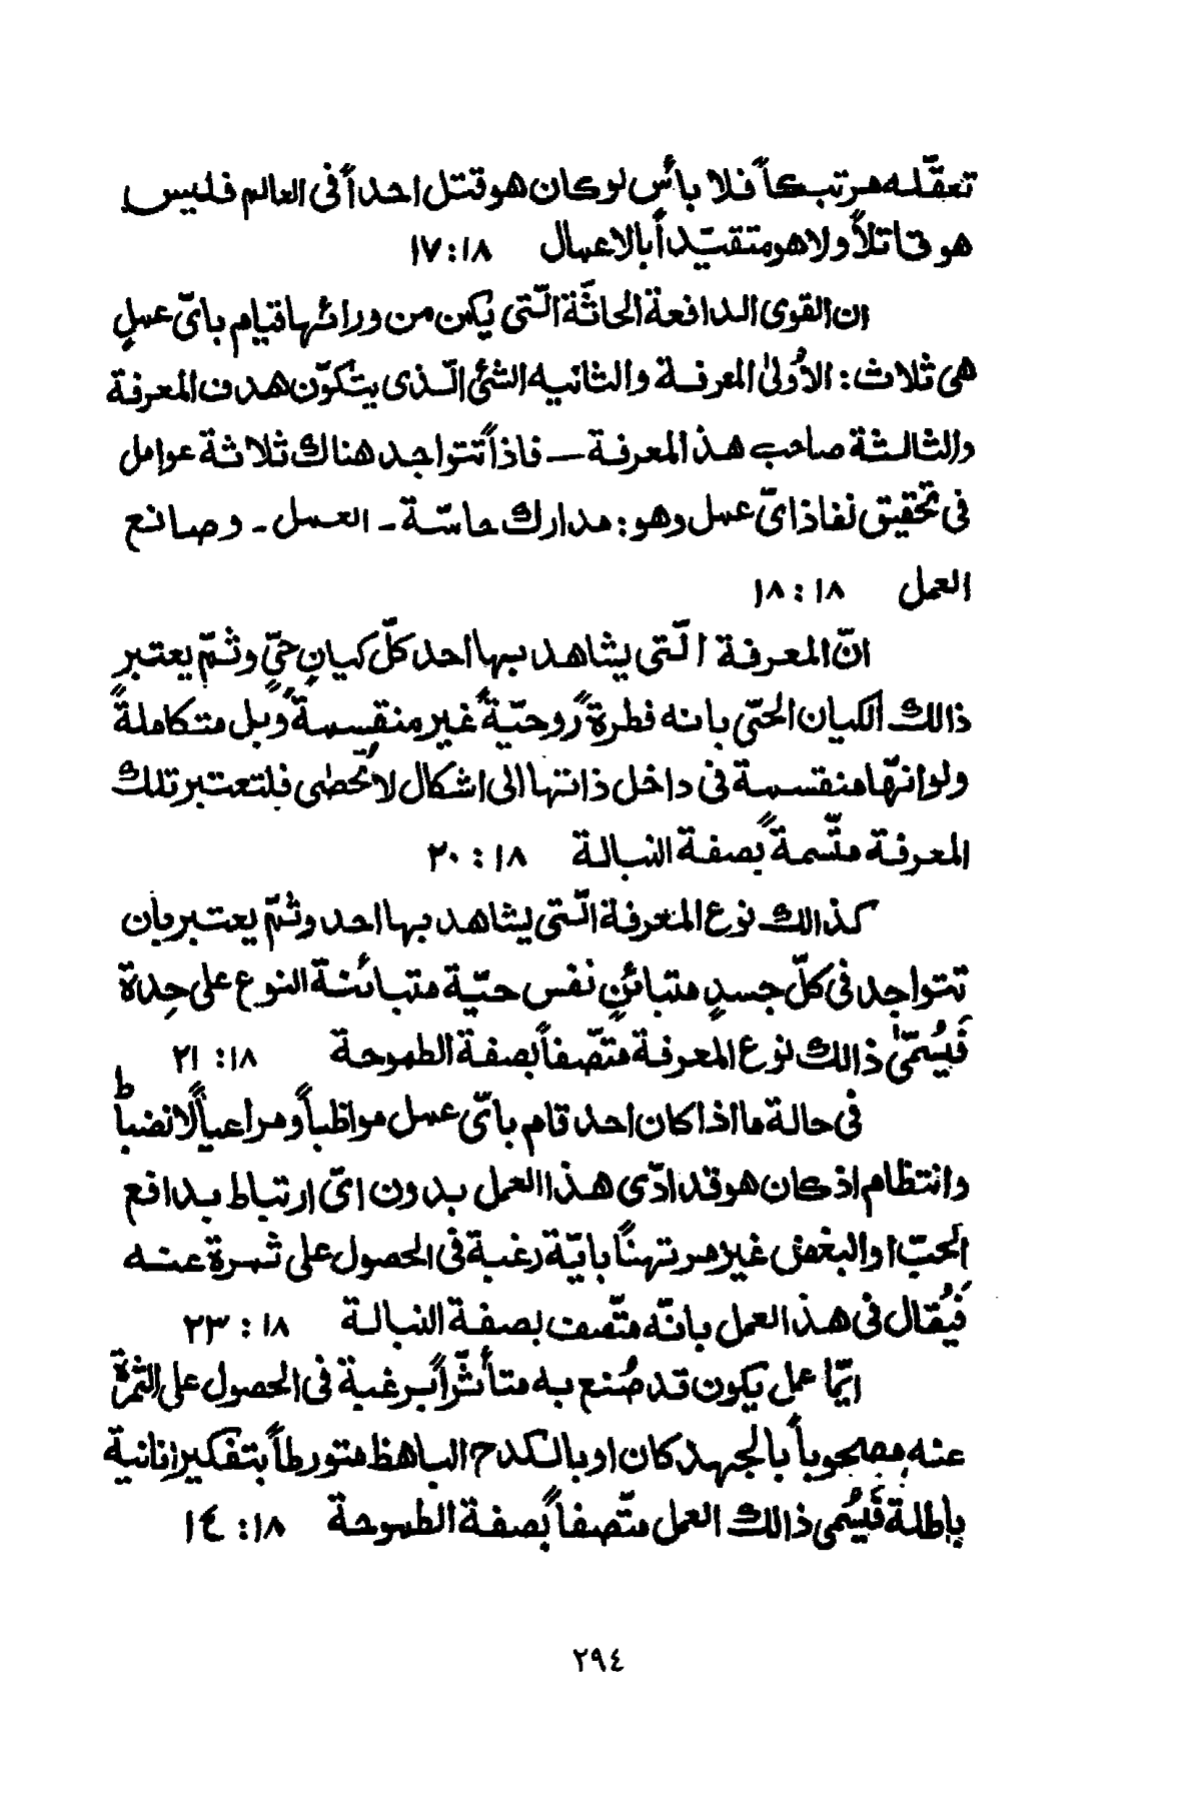 تعقّله مرتبكاً فلا بأس لو كان هو قتل احداً فى العالم فليس
هو قاتلاً ولا هو متقيّداً بالاعمال ١٧:١٨
ان القوى الدافعة الحاثّة الّتى يكمن من ورائها قيام باىّ عملٍ
هى ثلاث: الأولىٰ المعرفة والثانيه الشئ الّذى يتكوّن هدف المعرفة
والثالثة صاحب هذا المعرفة – فاذاً تتواجد هناك ثلاثة عوامل
فى تحقيق نفاذ اىّ عمل وهو: مدارك حاسّة - العمل - وصانع
العمل ١٨:١٨
انّ المعرفة الّتى يشاهد بها احد كلّ كيانٍ حىّ وثمّ يعتبر
ذالك الكيان الحىّ بانه فطرةً روحيّةً غير منقسمةً وبل متكاملةً
ولو انّها منقسمة فى داخل ذاتها الى اشكال لا تُحصٰى فلتعتبر تلك
المعرفة متّسمةً بصفة النبالة ٢٠:١٨
كذالك نوع المعرفة الّتى يشاهد بها احد وثمّ يعتبر بأن
تتواجد فى كلّ جسدٍ متبائنٍ نفس حيّة متبائنة النوع على حِدة
فَيُسمّىٰ ذالك نوع المعرفة متّصفاً بصفة الطموحة ٢١:١٨
فى حالة ما اذا كان احد قام باىّ عمل مواظباً ومراعياً لانضباط
وانتظام اذ كان هو قد ادّى هذا العمل بدون اىّ ارتباط بدافع
الحبّ او البغض غير مرتهنًا بايّة رغبة فى الحصول على ثمرة عنه
فَيُقال فى هذا العمل بانّه متّصف بصفة النبالة ٢٣:١٨
ايّما عمل يكون قد صُنع به متأثّراً برغبة فى الحصول على الثمرة
عنه مصحوباً بالجهد كان او بالكدح الباهظ متورطاً بتفكير انانية
باطلة فَيُسَمى ذالك العمل متّصفاً بصفة الطموحة ١٨:١٤
٢٩٤